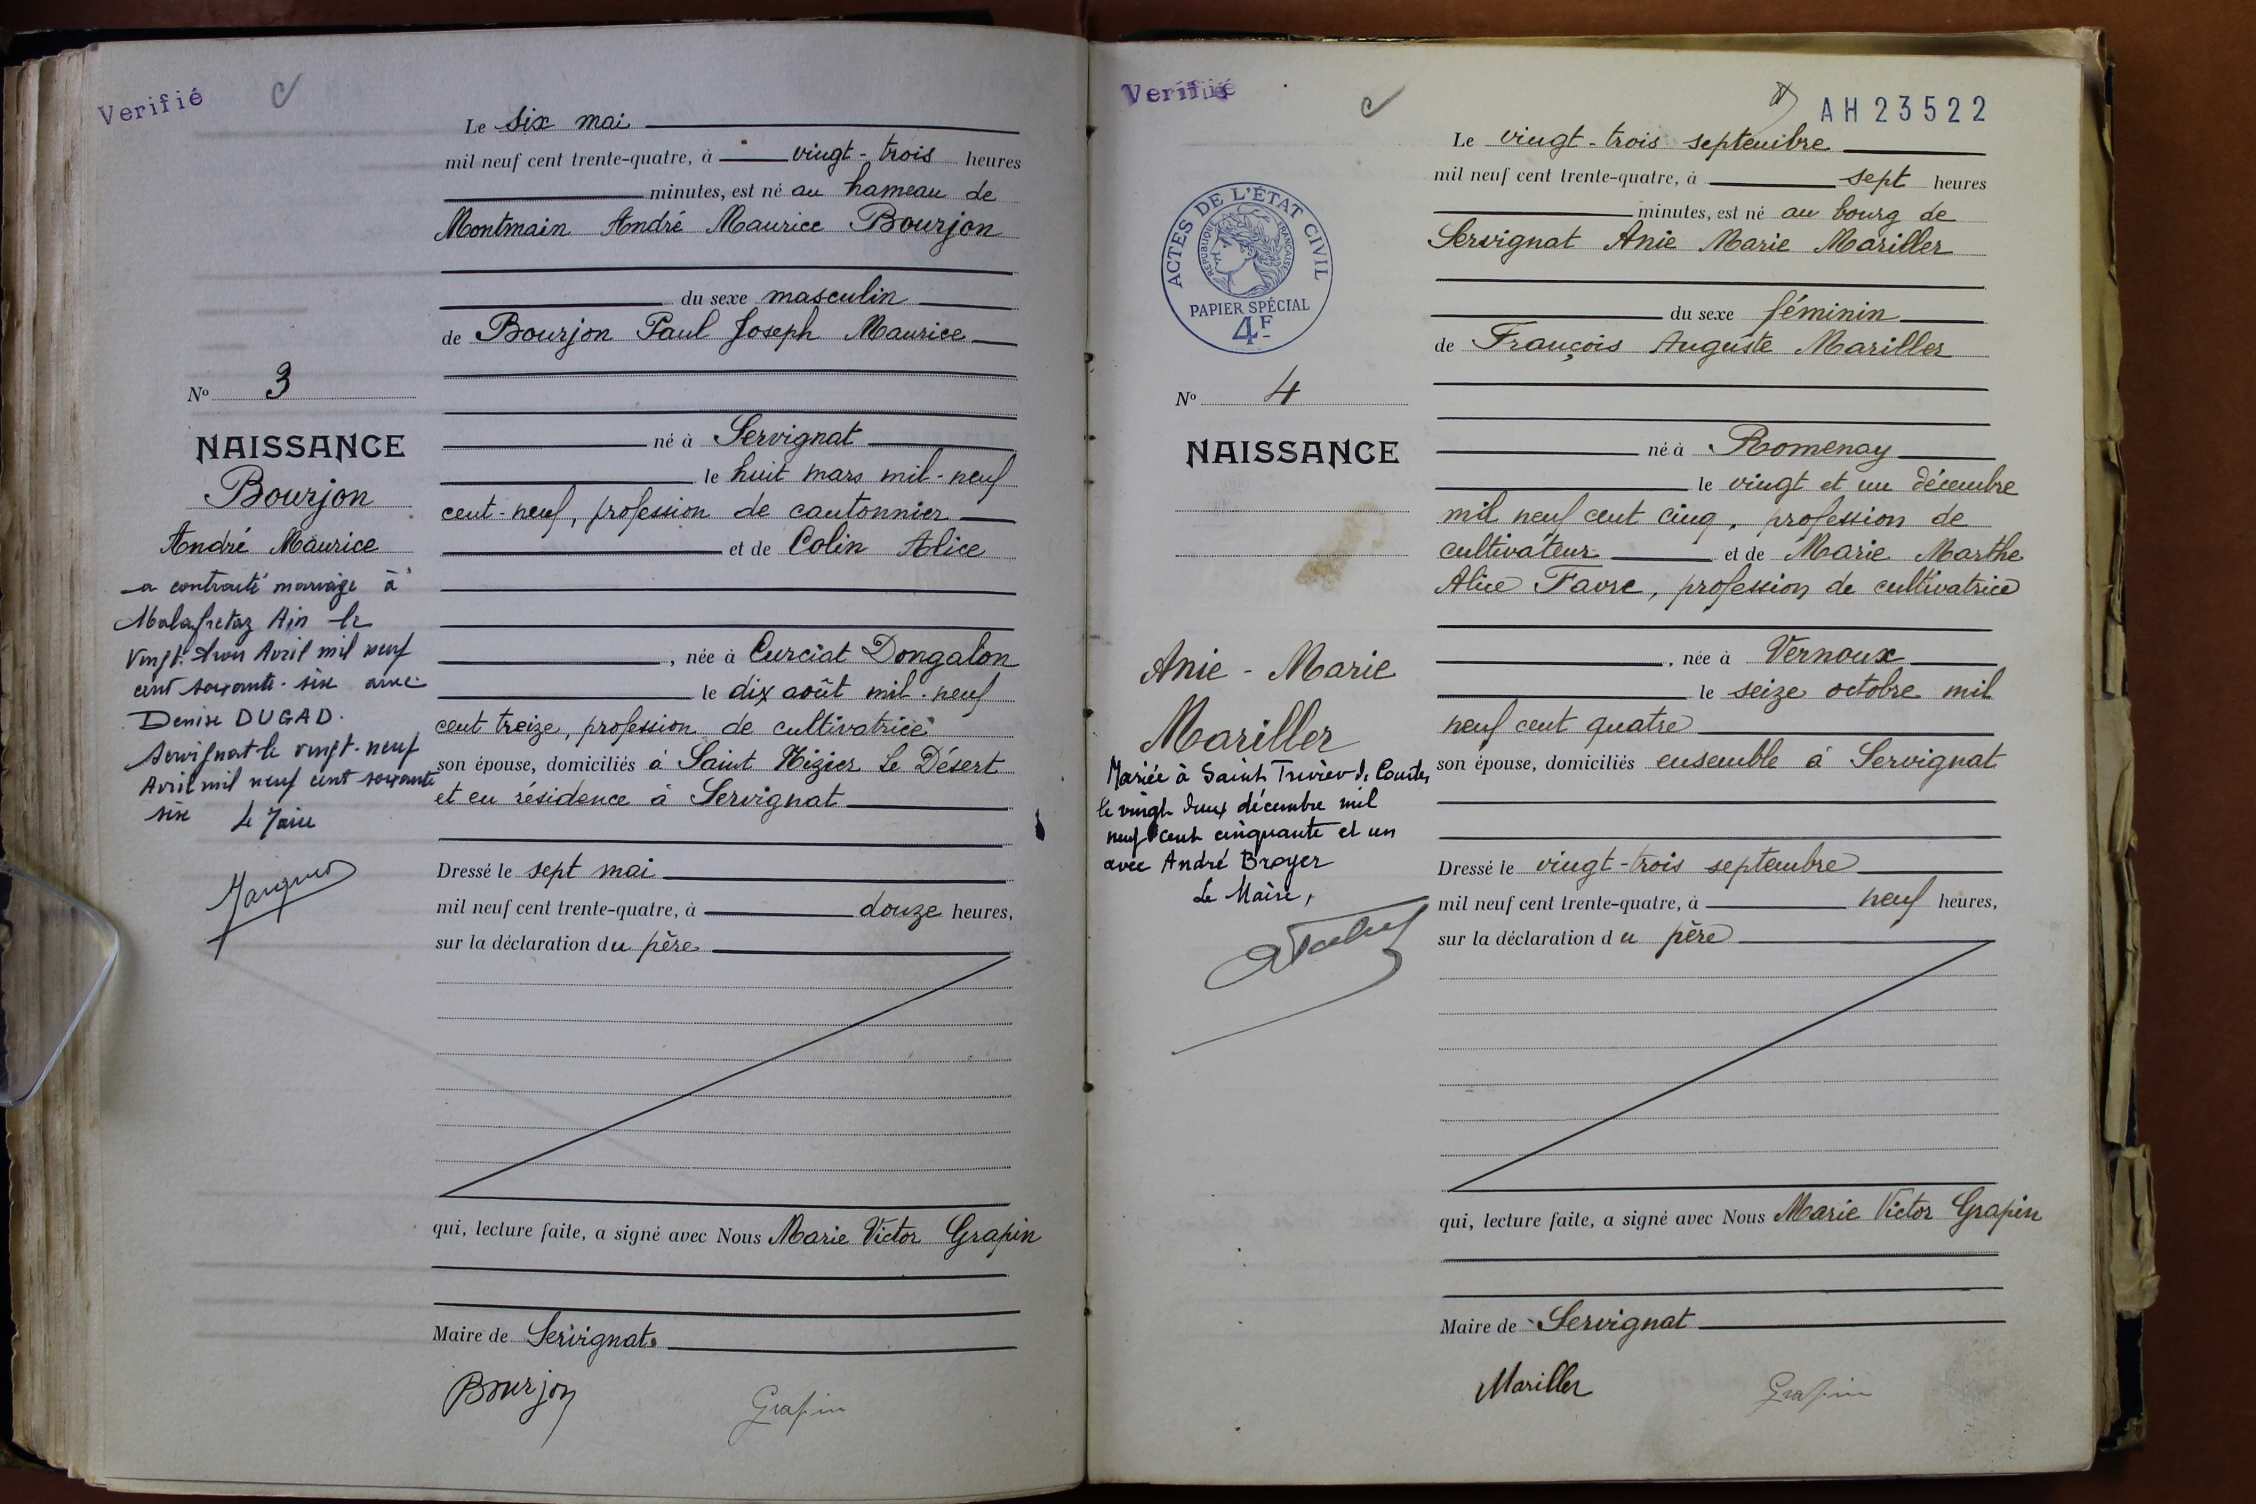 Verifié
Le six mai
mil neuf cent trente-quatre, à vingt-trois heures
minutes, est né au hameau de
Montmain André Maurice Bourjon
du sexe masculin
de Bourjon Paul Joseph Maurice
né à Servignat
le huit mars mil-neuf
cent-neuf, profession de cantonnier
et de Colin Alice
née à Curciat Dongalon
le dix août mil-neuf
cent treize, profession de cultivatrice
son épouse, domiciliés à Saint Nizier Le Désert
et en résidence à Servignat
Dressé le sept mai
mil neuf cent trente-quatre, à douze heures,
sur la déclaration du père
qui, lecture faite, a signé avec Nous Marie Victor Grapin
Maire de Servignat
Bourjon Grapin
No 3
NAISSANCE
Bourjon
André Maurice
a contracté mariage à
Malafretaz Ain le
Vingt-trois Avril mil neuf
cent soixante-six avec
Denise DUGAD.
Servignat le vingt-neuf
Avril mil neuf cent soixante
six Le Maire
Verifié
AH23522
Le vingt-trois septembre
mil neuf cent trente-quatre, à sept heures
minutes, est né au bourg de
Servignat Anie Marie Mariller
du sexe féminin
de François Auguste Mariller
né à Romenay
le vingt et un décembre
mil neuf cent cinq, profession de
cultivateur et de Marie Marthe
Alice Favre, profession de cultivatrice
, née à Vernoux
le seize octobre mil
neuf cent quatre
son épouse, domiciliés ensemble à Servignat
Dressé le vingt-trois septembre
mil neuf cent trente-quatre, à neuf heures,
sur la déclaration du père
qui, lecture faite, a signé avec Nous Marie Victor Grapin
Maire de Servignat
Mariller Grapin
ACTES DE L'ÉTAT CIVIL
RÉPUBLIQUE FRANÇAISE
PAPIER SPÉCIAL
4F
No 4
NAISSANCE
Anie-Marie
Mariller
Mariée à Saint Trivier de Courtes
le vingt deux décembre mil
neuf cent cinquante et un
avec André Broyer
Le Maire,